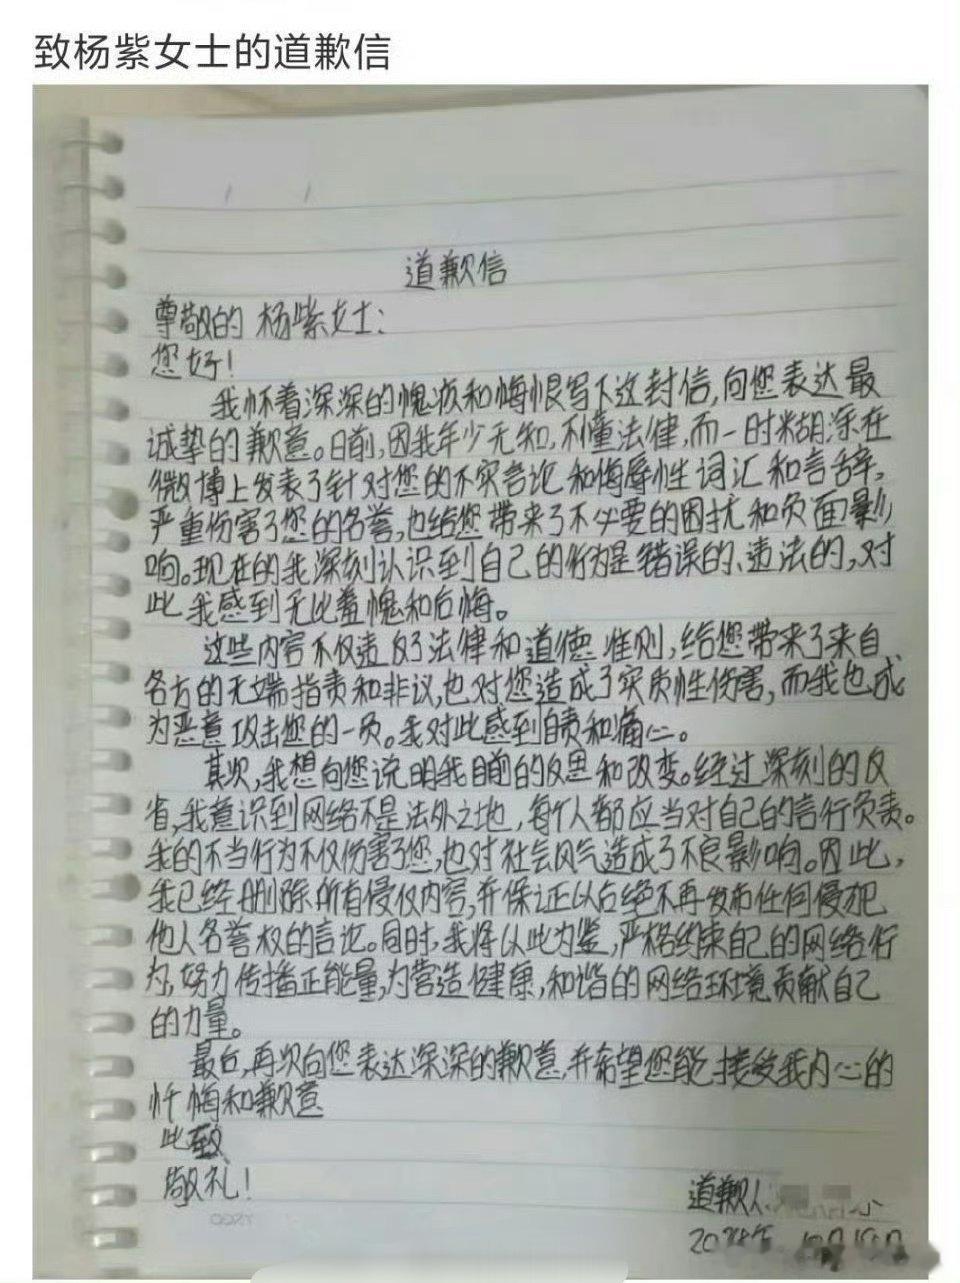 致杨紫女士的道歉信
道歉信
尊敬的杨紫女士：
您好！
我怀着深深的愧疚和悔恨写下这封信，向您表达最
诚挚的歉意。日前，因我年少无知，不懂法律，而一时糊涂在
微博上发表了针对您的不实言论和侮辱性词汇和言辞，
严重伤害了您的名誉，也给您带来了不必要的困扰和负面影
响。现在的我深刻认识到自己的行为是错误的、违法的，对
此我感到无比羞愧和后悔。
这些内容不仅违反了法律和道德准则，给您带来了来自
各方的无端指责和非议，也对您造成了实质性伤害，而我也成
为恶意攻击您的一员。我对此感到自责和痛心。
其次，我想向您说明我目前的反思和改变。经过深刻的反
省，我意识到网络不是法外之地，每个人都应当对自己的言行负责。
我的不当行为不仅伤害了您，也对社会风气造成了不良影响。因此，
我已经删除所有侵权内容，并保证以后绝不再发布任何侵犯
他人名誉权的言论。同时，我将以此为鉴，严格约束自己的网络行
为，努力传播正能量，为营造健康，和谐的网络环境贡献自己
的力量。
最后，再次向您表达深深的歉意，并希望您能接受我内心的
忏悔和歉意
此致
敬礼！
道歉人：
2024年 10月